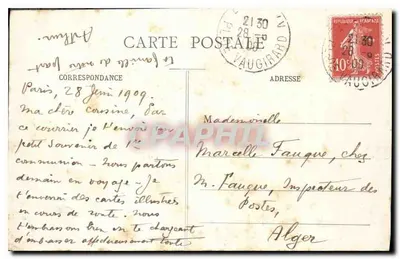 21 30
28 -9
VAUGIRARD
RÉPUBLIQUE FRANÇAISE
10c
21 30
CARTE POSTALE
ta famille de notre part
Arthur
CORRESPONDANCE
ADRESSE
Paris, 28 Juin 1909.
Ma chère cousine, Par
ce courrier je t'envoie un
petit souvenir de 1re
communion - Nous partons
demain en voyage - Je
t'enverrai des cartes illustrées
en cours de route. Nous
t'embrassons bien en te chargeant
d'embrasser affectueusement toute
Mademoiselle
Marcelle Fauque, chez
M. Fauque, Inspecteur des
Postes,
Alger